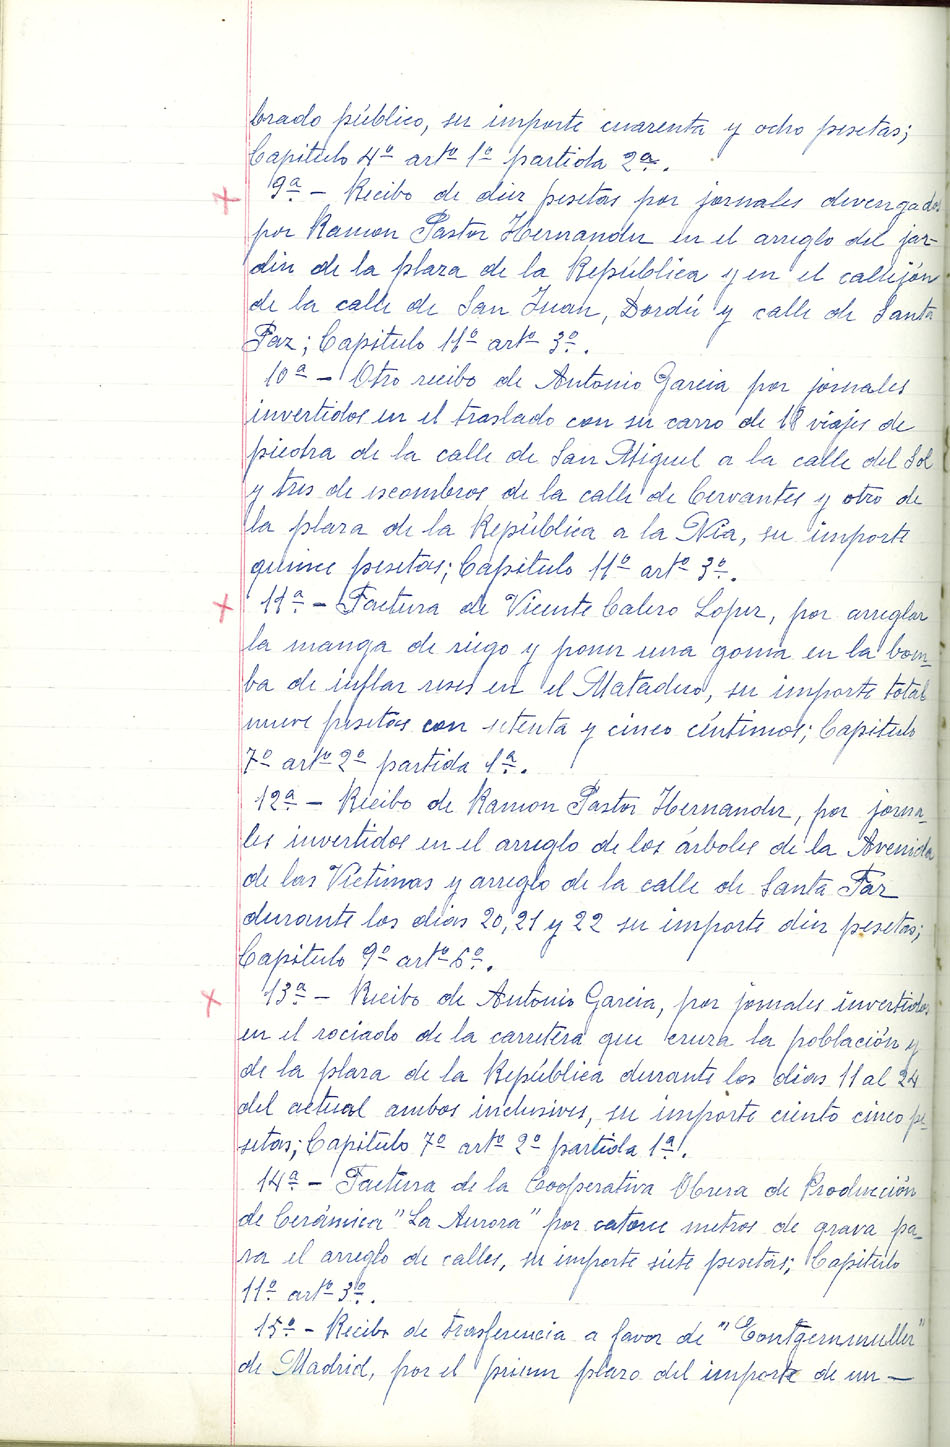 brado público, su importe cuarenta y ocho pesetas;
Capitulo 4º artº 1º partida 2ª.
9ª - Recibo de diez pesetas por jornales devengados
por Ramon Pastor Hernandez en el arreglo del jar-
din de la plaza de la República y en el callejón
de la calle de San Juan, Dordú y calle de Santa
Faz; Capitulo 11º artº 3º.
10ª - Otro recibo de Antonio Garcia por jornales
invertidos en el traslado con su carro de 18 viajes de
piedra de la calle de San Miguel a la calle del Sol
y tres de escombros de la calle de Cervantes y otro de
la plaza de la República a la Via, su importe
quince pesetas; Capitulo 11º artº 3º.
11ª - Factura de Vicente Calero Lopez, por arreglar
la manga de riego y poner una goma en la bom-
ba de inflar reses en el Matadero, su importe total
nueve pesetas con setenta y cinco céntimos; Capitulo
7º artº 2º partida 1ª.
12ª - Recibo de Ramon Pastor Hernandez, por jorna-
les invertidos en el arreglo de los árboles de la Avenida
de las Victimas y arreglo de la calle de Santa Faz
durante los dias 20, 21 y 22 su importe diez pesetas;
Capitulo 9º artº 6º.
13ª - Recibo de Antonio Garcia, por jornales invertidos
en el rociado de la carretera que cruza la población y
de la plaza de la República durante los dias 11 al 24
del actual ambos inclusives, su importe ciento cinco pe-
setas; Capitulo 7º artº 2º partida 1ª.
14ª - Factura de la Cooperativa Obrera de Producción
de Cerámica "La Aurora" por catorce metros de grava pa-
ra el arreglo de calles, su importe siete pesetas; Capitulo
11º artº 3º.
15ª - Recibo de trasferencia a favor de
de Madrid, por el primer plazo del importe de un -